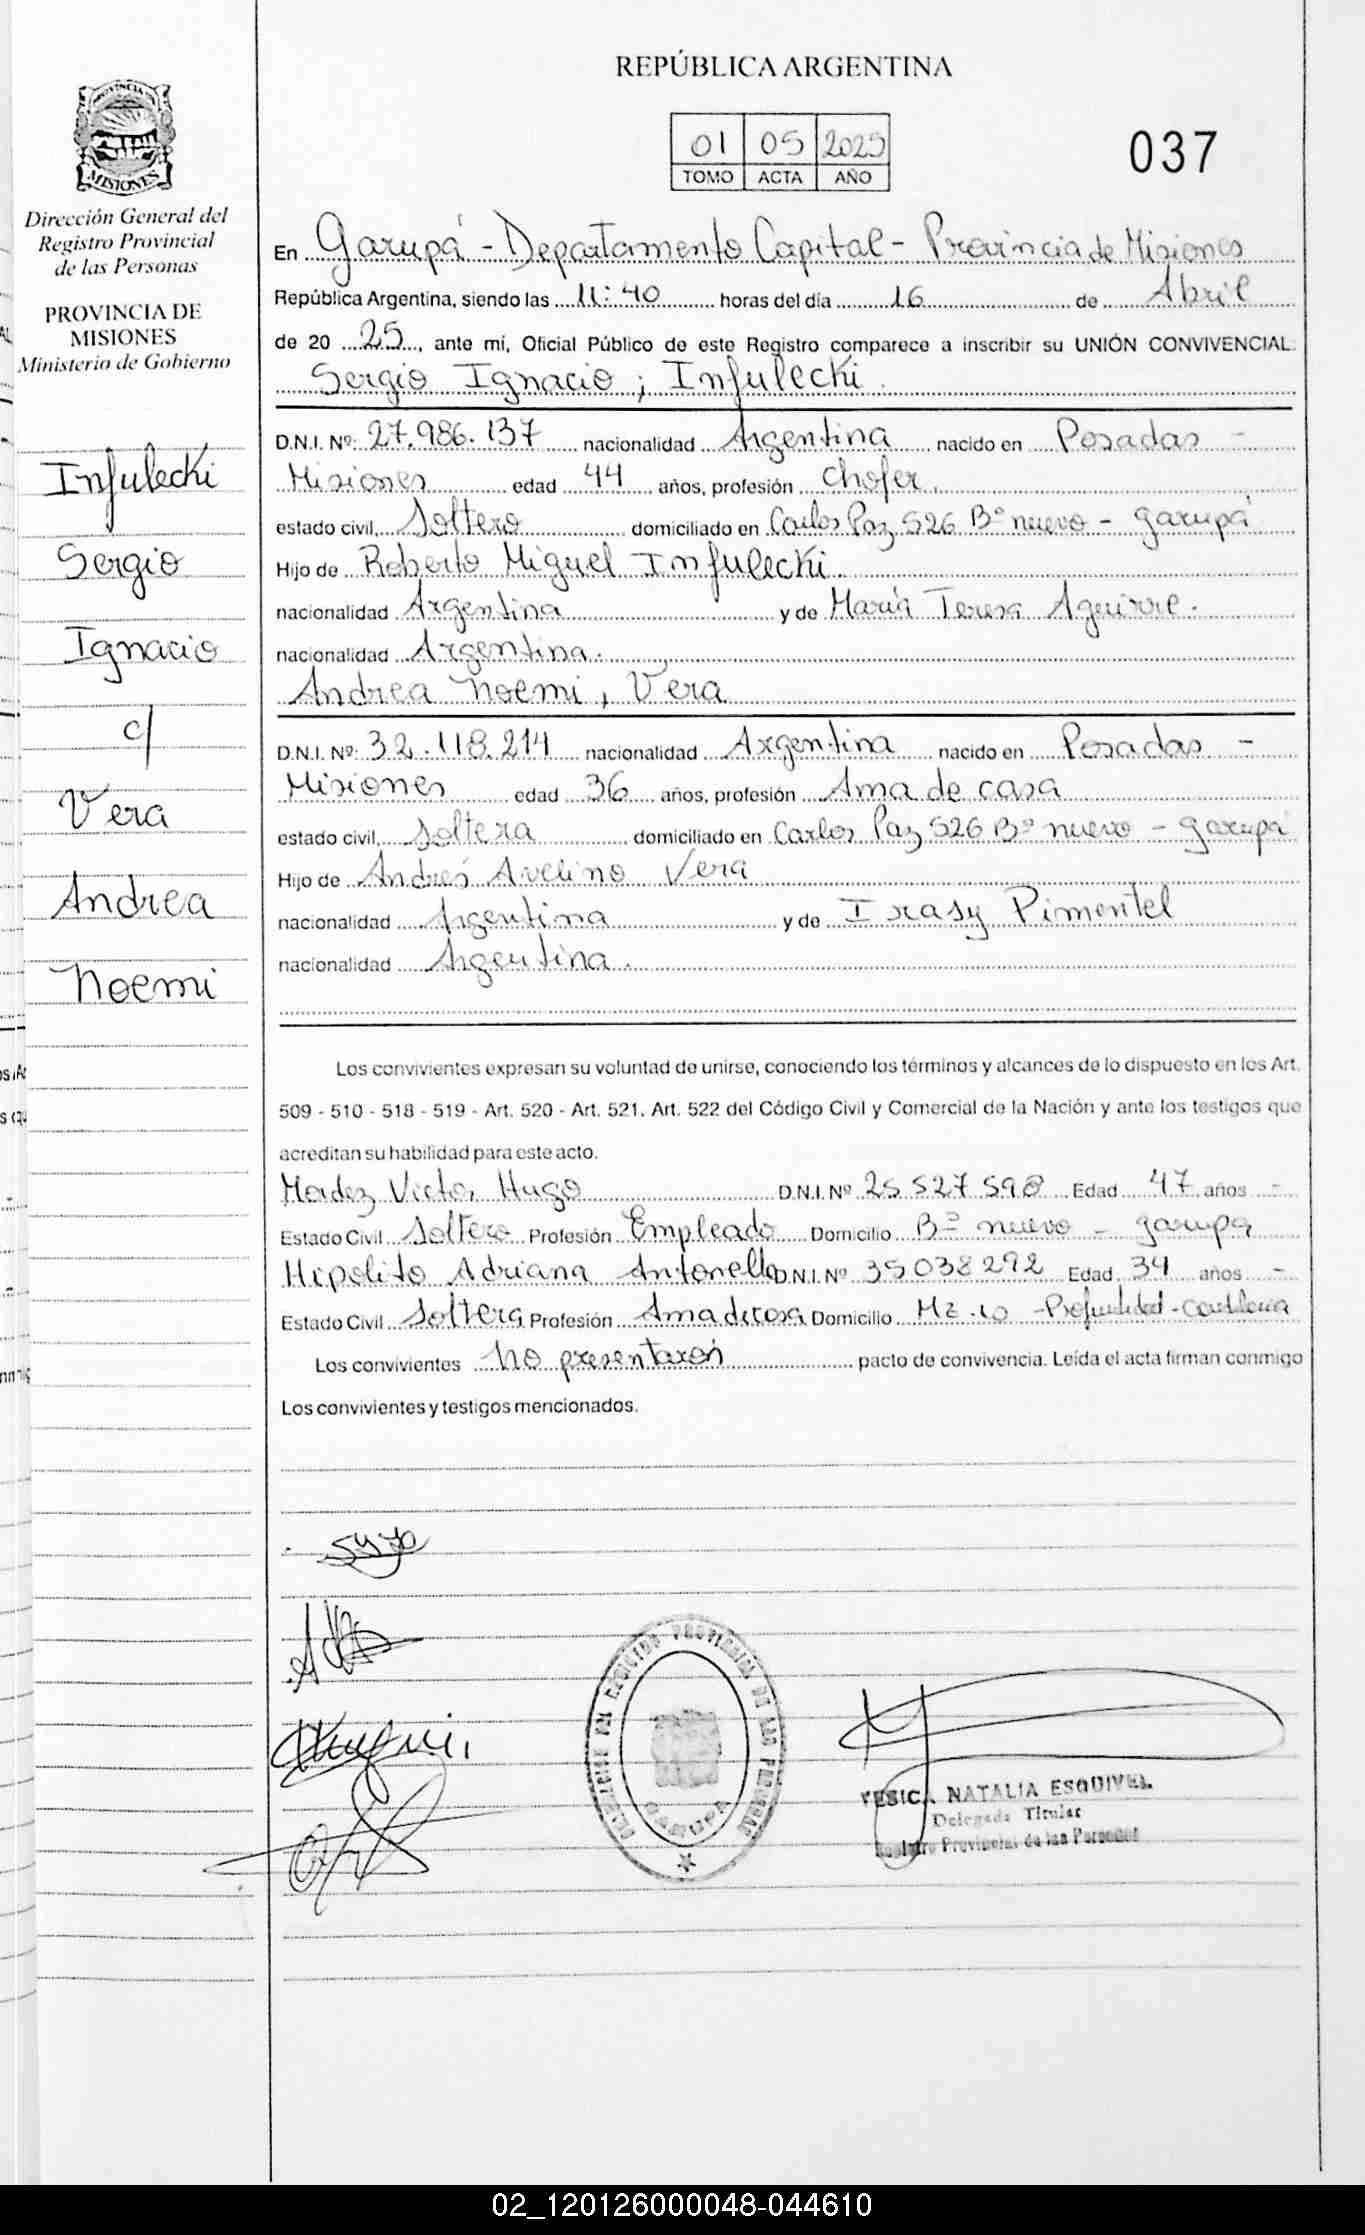 REPÚBLICA ARGENTINA
01 05 2025
TOMO ACTA AÑO
037
PROVINCIA
MISIONES
Dirección General del
Registro Provincial
de las Personas
PROVINCIA DE
MISIONES
Ministerio de Gobierno
Infulecki
Sergio
Ignacio
c/
Vera
Andrea
Noemi
En Garupá - Departamento Capital - Provincia de Misiones
República Argentina, siendo las 11:40 horas del día 16 de Abril
de 20 25, ante mí, Oficial Público de este Registro comparece a inscribir su UNIÓN CONVIVENCIAL:
Sergio Ignacio ; Infulecki.
D.N.I. Nº: 27.986.137 nacionalidad Argentina nacido en Posadas -
Misiones edad 44 años, profesión Chofer.
estado civil, Soltero domiciliado en Carlos Paz 526 Bº nuevo - garupá
Hijo de Roberto Miguel Infulecki.
nacionalidad Argentina y de María Teresa Aguirre.
nacionalidad Argentina.
Andrea Noemi, Vera
D.N.I. Nº: 32.118.214 nacionalidad Argentina nacido en Posadas -
Misiones edad 36 años, profesión Ama de casa
estado civil, Soltera domiciliado en Carlos Paz 526 Bº nuevo - garupá
Hijo de Andrés Avelino Vera
nacionalidad Argentina y de Irasy Pimentel
nacionalidad Argentina.
Los convivientes expresan su voluntad de unirse, conociendo los términos y alcances de lo dispuesto en los Art.
509 - 510 - 518 - 519 - Art. 520 - Art. 521, Art. 522 del Código Civil y Comercial de la Nación y ante los testigos que
acreditan su habilidad para este acto.
Victor Hugo D.N.I. Nº 25 527 598 Edad 47 años -
Estado Civil Soltero Profesión Empleado Domicilio Bº nuevo - garupá
Hipolito Adriana Antonella D.N.I. Nº 35038292 Edad 34 años -
Estado Civil Soltera Profesión Ama de casa Domicilio Mz. 10 - Profundidad - Candelaria
Los convivientes No presentarón pacto de convivencia. Leída el acta firman conmigo
Los convivientes y testigos mencionados.
DELEGACION DEL REGISTRO PROVINCIAL DE LAS PERSONAS
GARUPA
YESICA NATALIA ESQUIVEL
Delegada Titular
Registro Provincial de las Personas
02_120126000048-044610